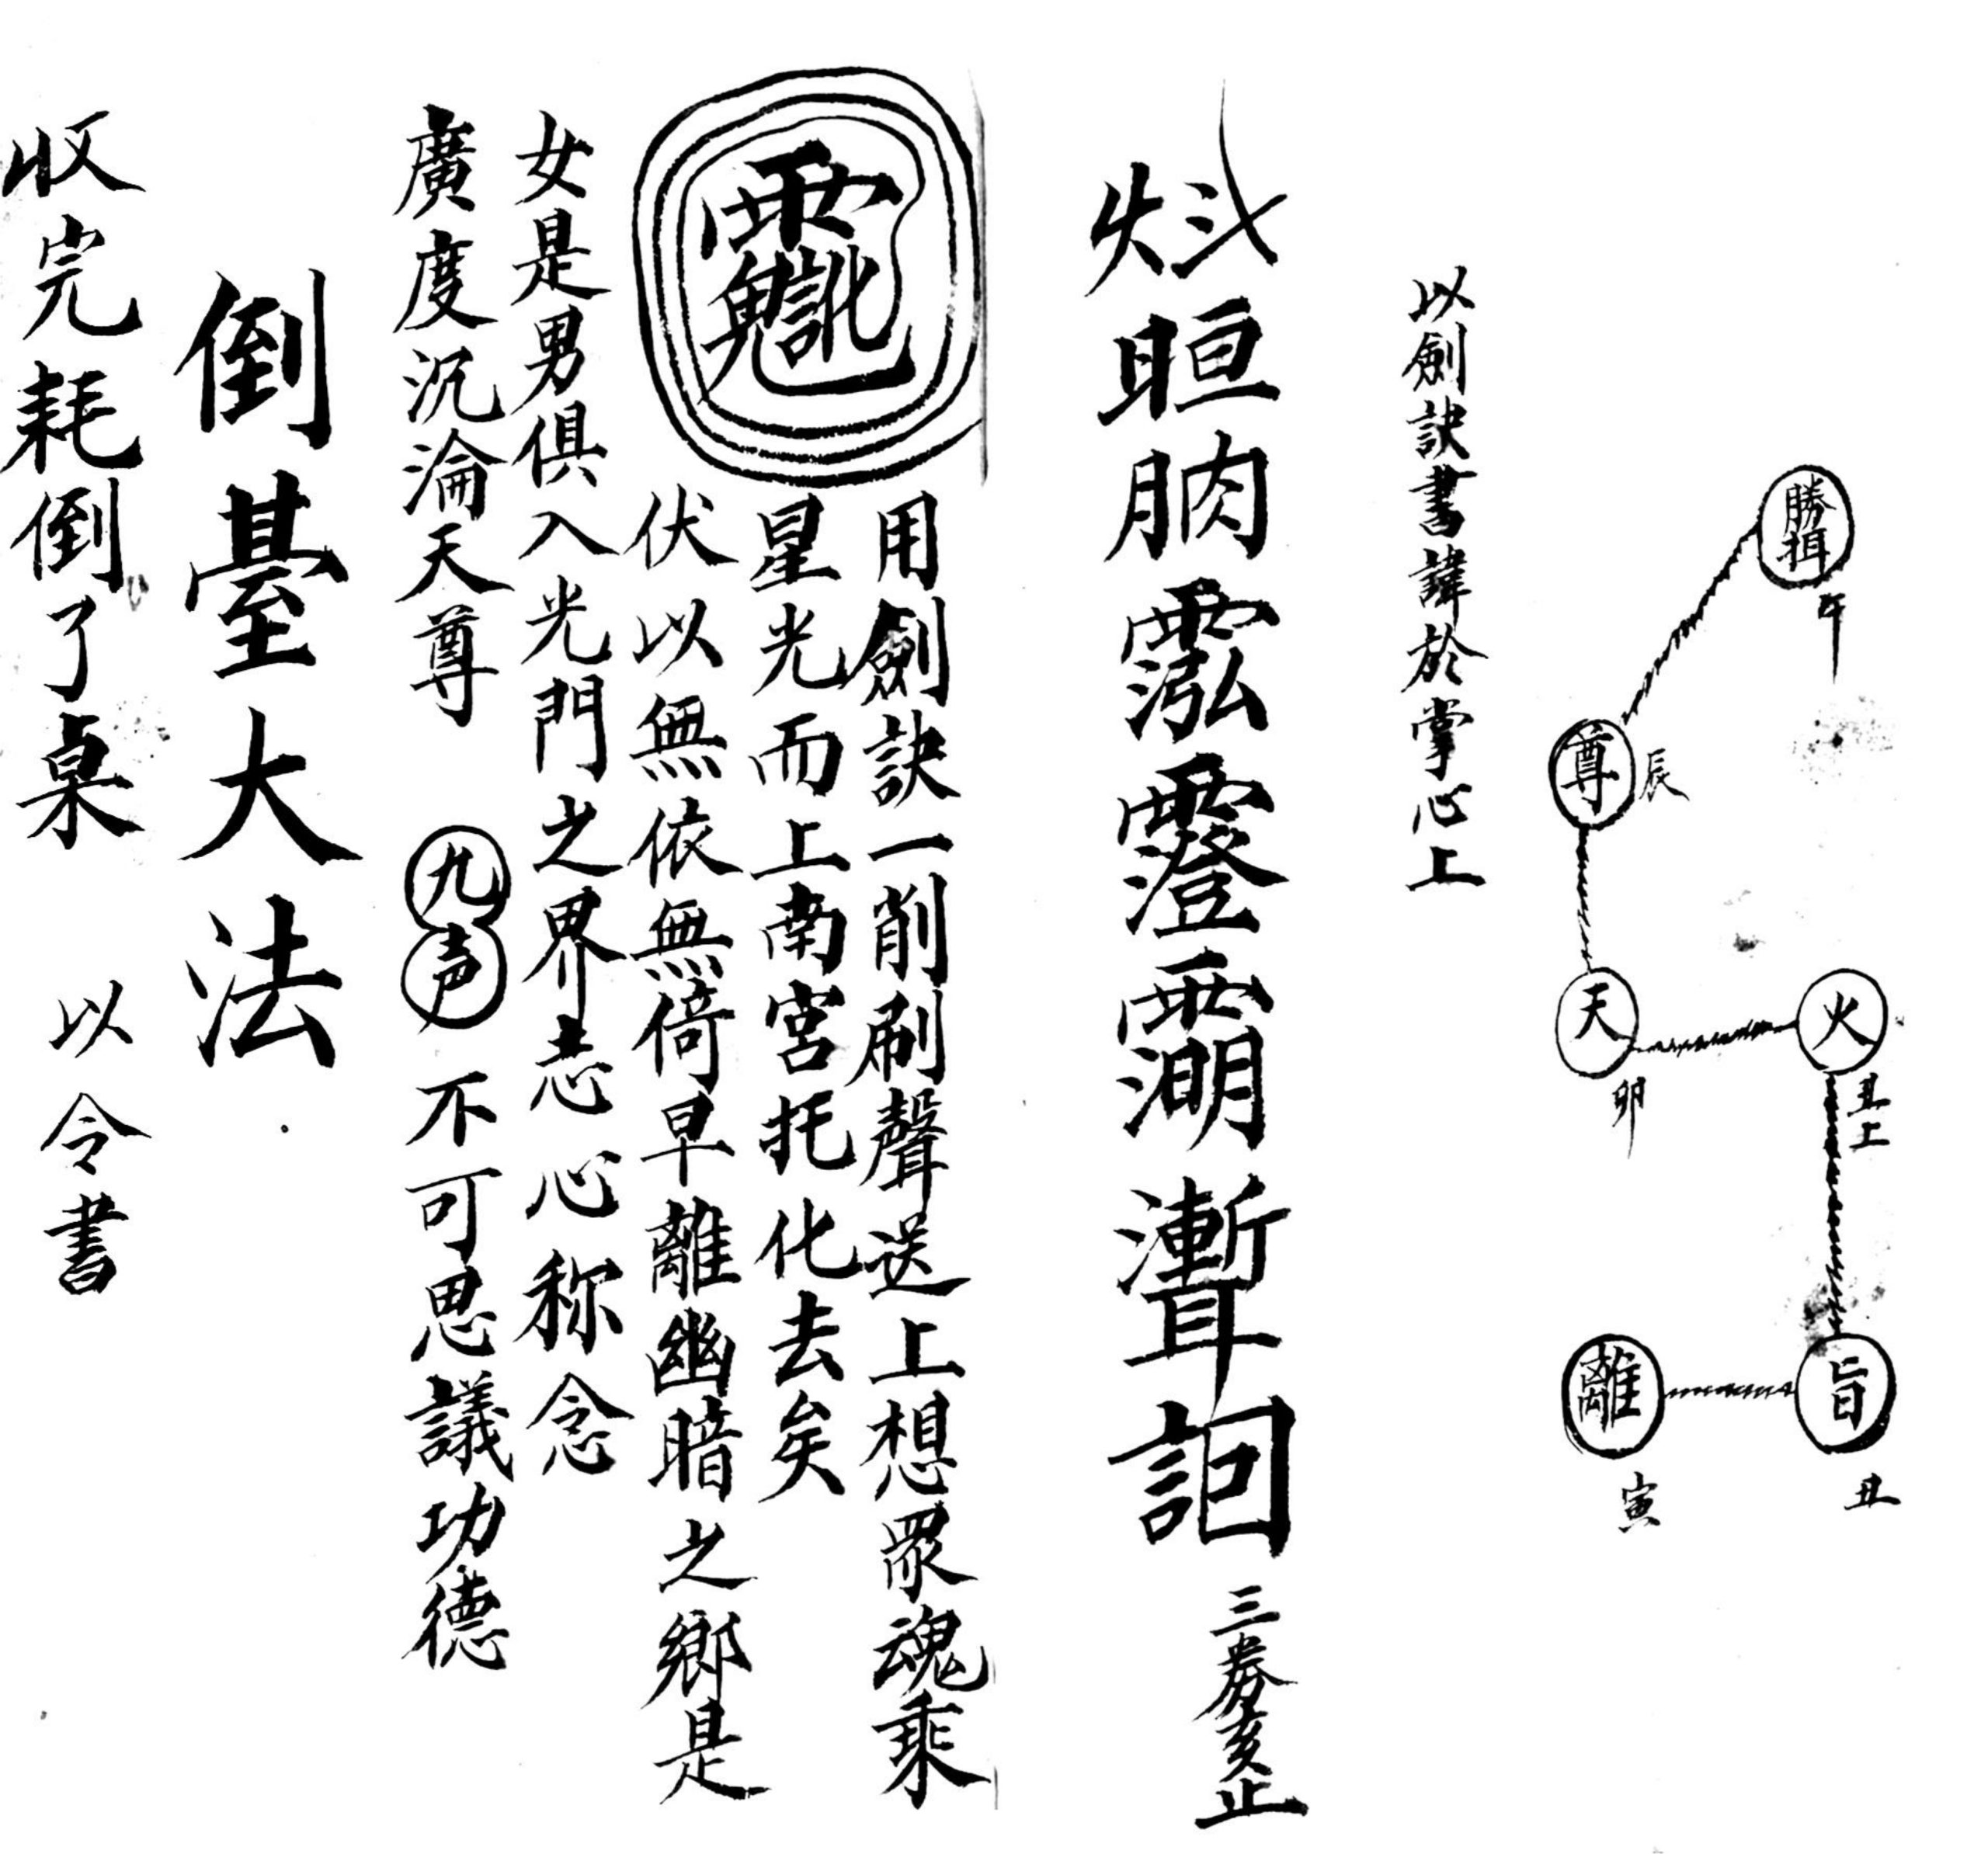 勝揖
午
尊
辰
天
卯
火
丑上
旨
丑
離
寅
以劍訣書諱於掌心上
晅朒
三
止
用劍訣一削刷聲送上想眾魂乘
星光而上南宮托化去矣
伏以無依無倚早離幽暗之鄉是
女是男俱入光門之界志心称念
廣度沉淪天尊 九声 不可思議功德
倒臺大法
收完耗倒了桌 以令書